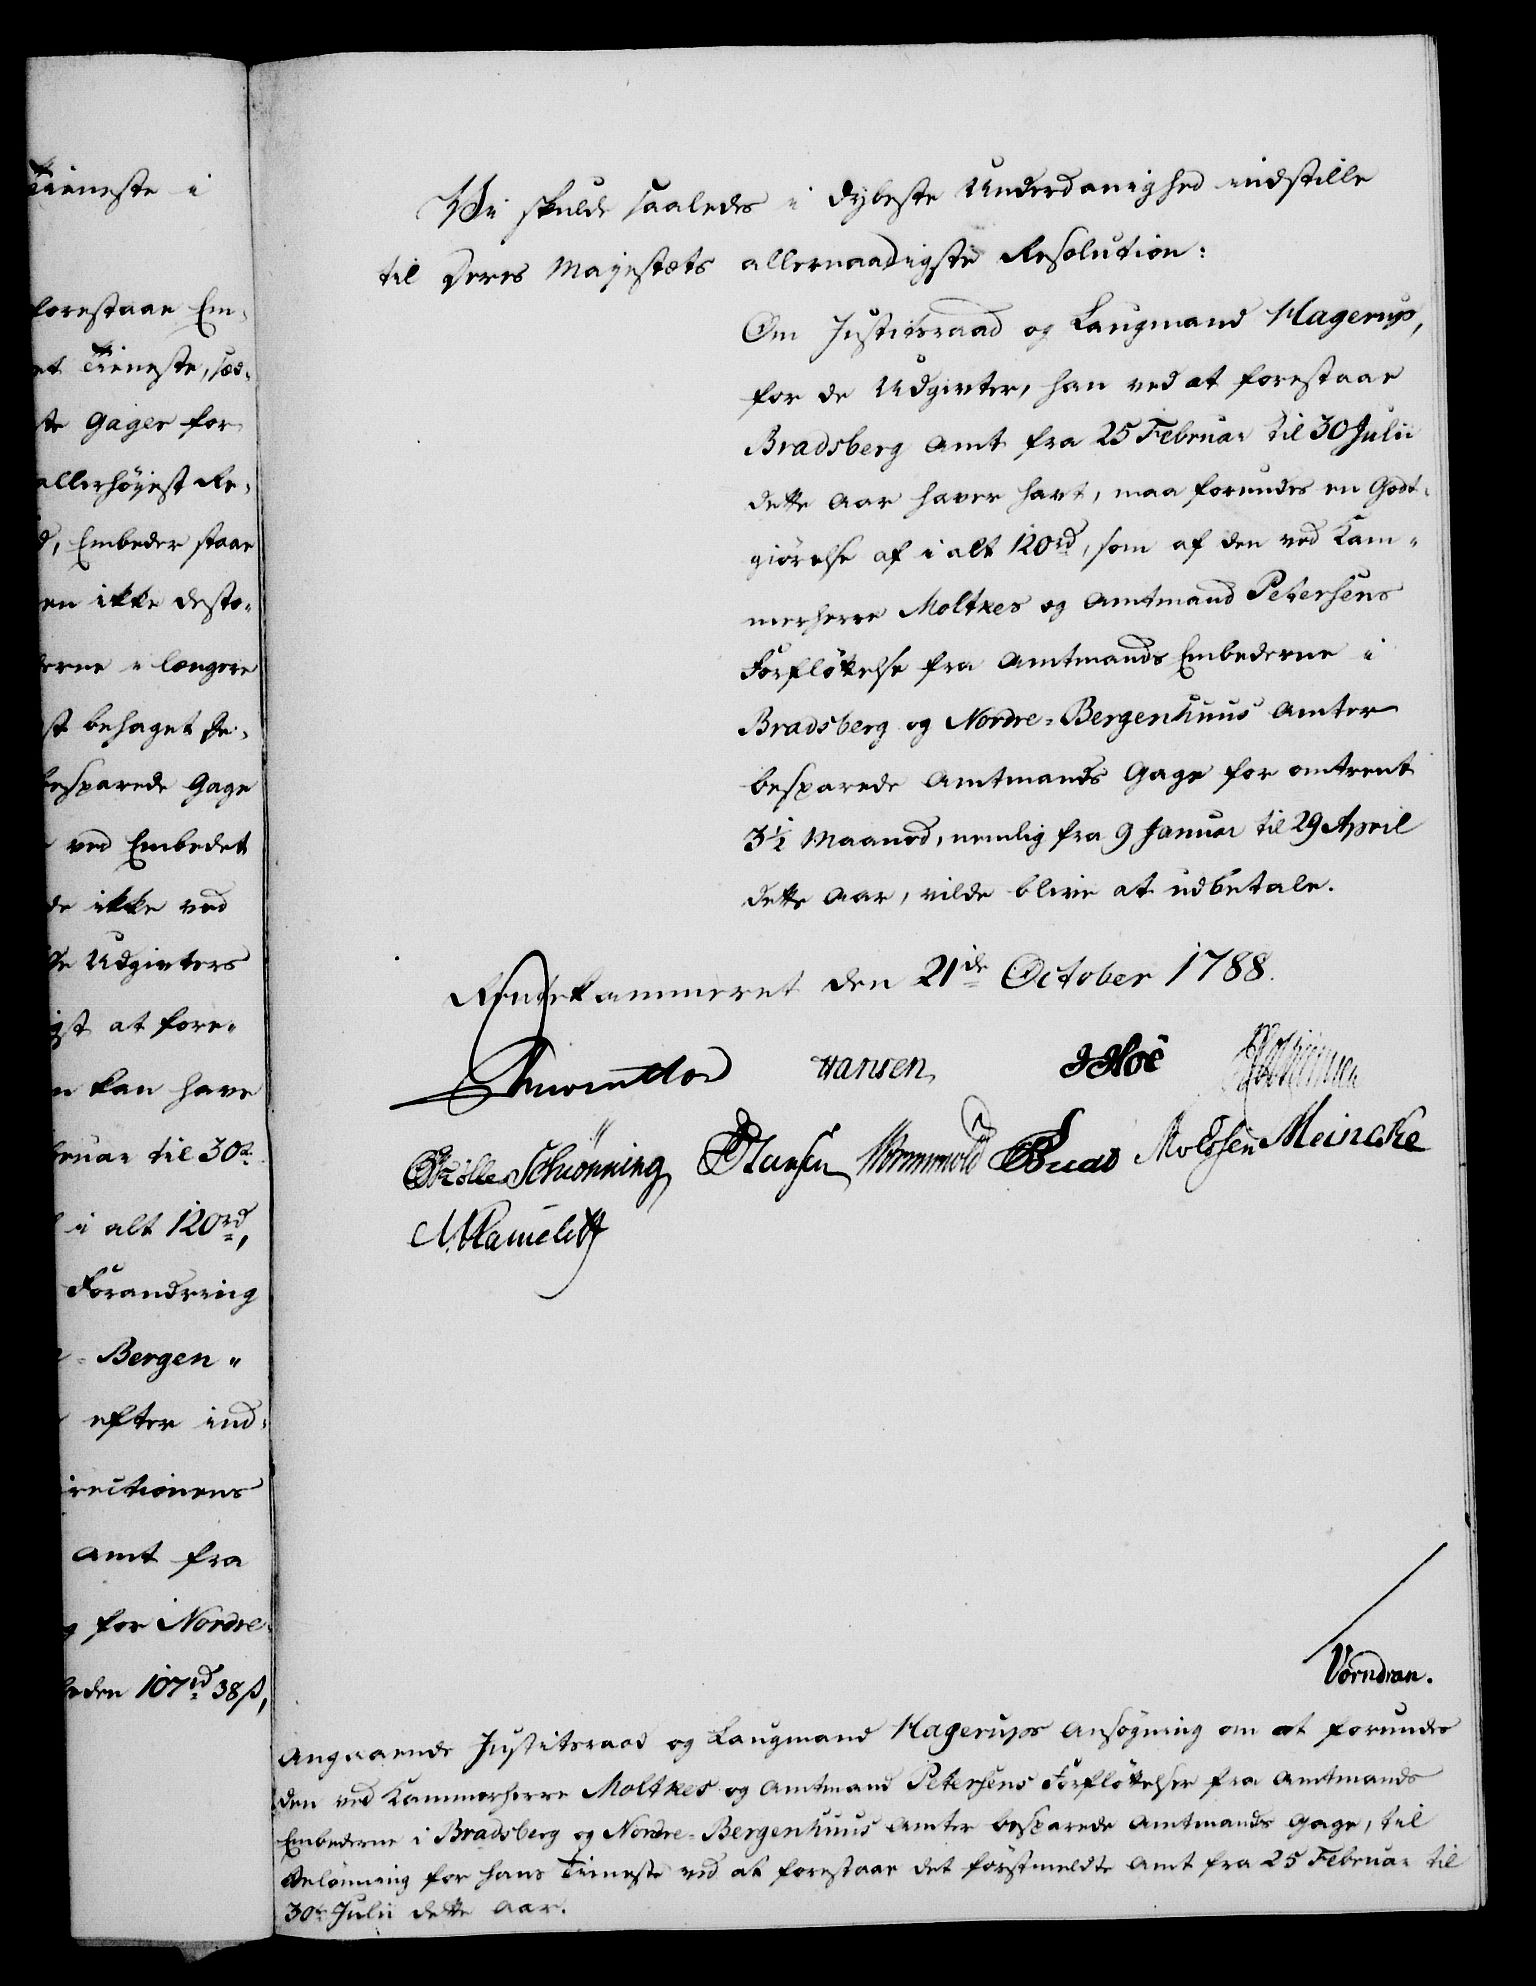 Tieneste i
forestaae Em-
et Tieneste, sæd-
te Gager for
allerhøyest Re-
d, Embeder staae
en ikke desto-
derne i længere
st behaget De-
besparede Gage
ved Embedet
de ikke ved
Udgivters
igst at fore-
kan have
bruar til 30te
i alt 120rd,
Forandring
- Bergen-
efter ind-
irectionens
Amt fra
for Nordre-
eden 107rd 38ß,
Vi skulde saaledes i dybeste Underdanighed indstille
til Deres Majestæts allernaadigste Resolution:
Om Justitsraad og Laugmand Hagerup,
for de Udgivter, han ved at forestaae
Bradsberg Amt fra 25 Februar til 30 Julii
dette Aar haver havt, maa forundes en Godt-
giørelse af i alt 120rd, som af den ved Kam-
merherre Moltkes og Amtmand Petersens
Forfløttelse fra Amtmands Embederne i
Bradsberg og Nordre-Bergenhuus Amter
besparede Amtmands Gage for omtrent
3½ Maaned, nemlig fra 9 Januar til 29 April
dette Aar, vilde blive at udbetale.
Rentekammeret den 21de October 1788.
Hansen JHoë
Schiønning PHansen Wormwold Meincke
Vörndran.
Angaaende Justitsraad og Laugmand Hagerups Ansøgning om at forundes
den ved Kammerherre Moltkes og Amtmand Petersens Forfløttelser fra Amtmands
Embederne i Bradsberg og Nordre-Bergenhuus Amter besparede Amtmands Gage, til
Belønning for hans Tieneste ved at forestaae det førstmeldte Amt fra 25 Februar til
30te Julii dette Aar.